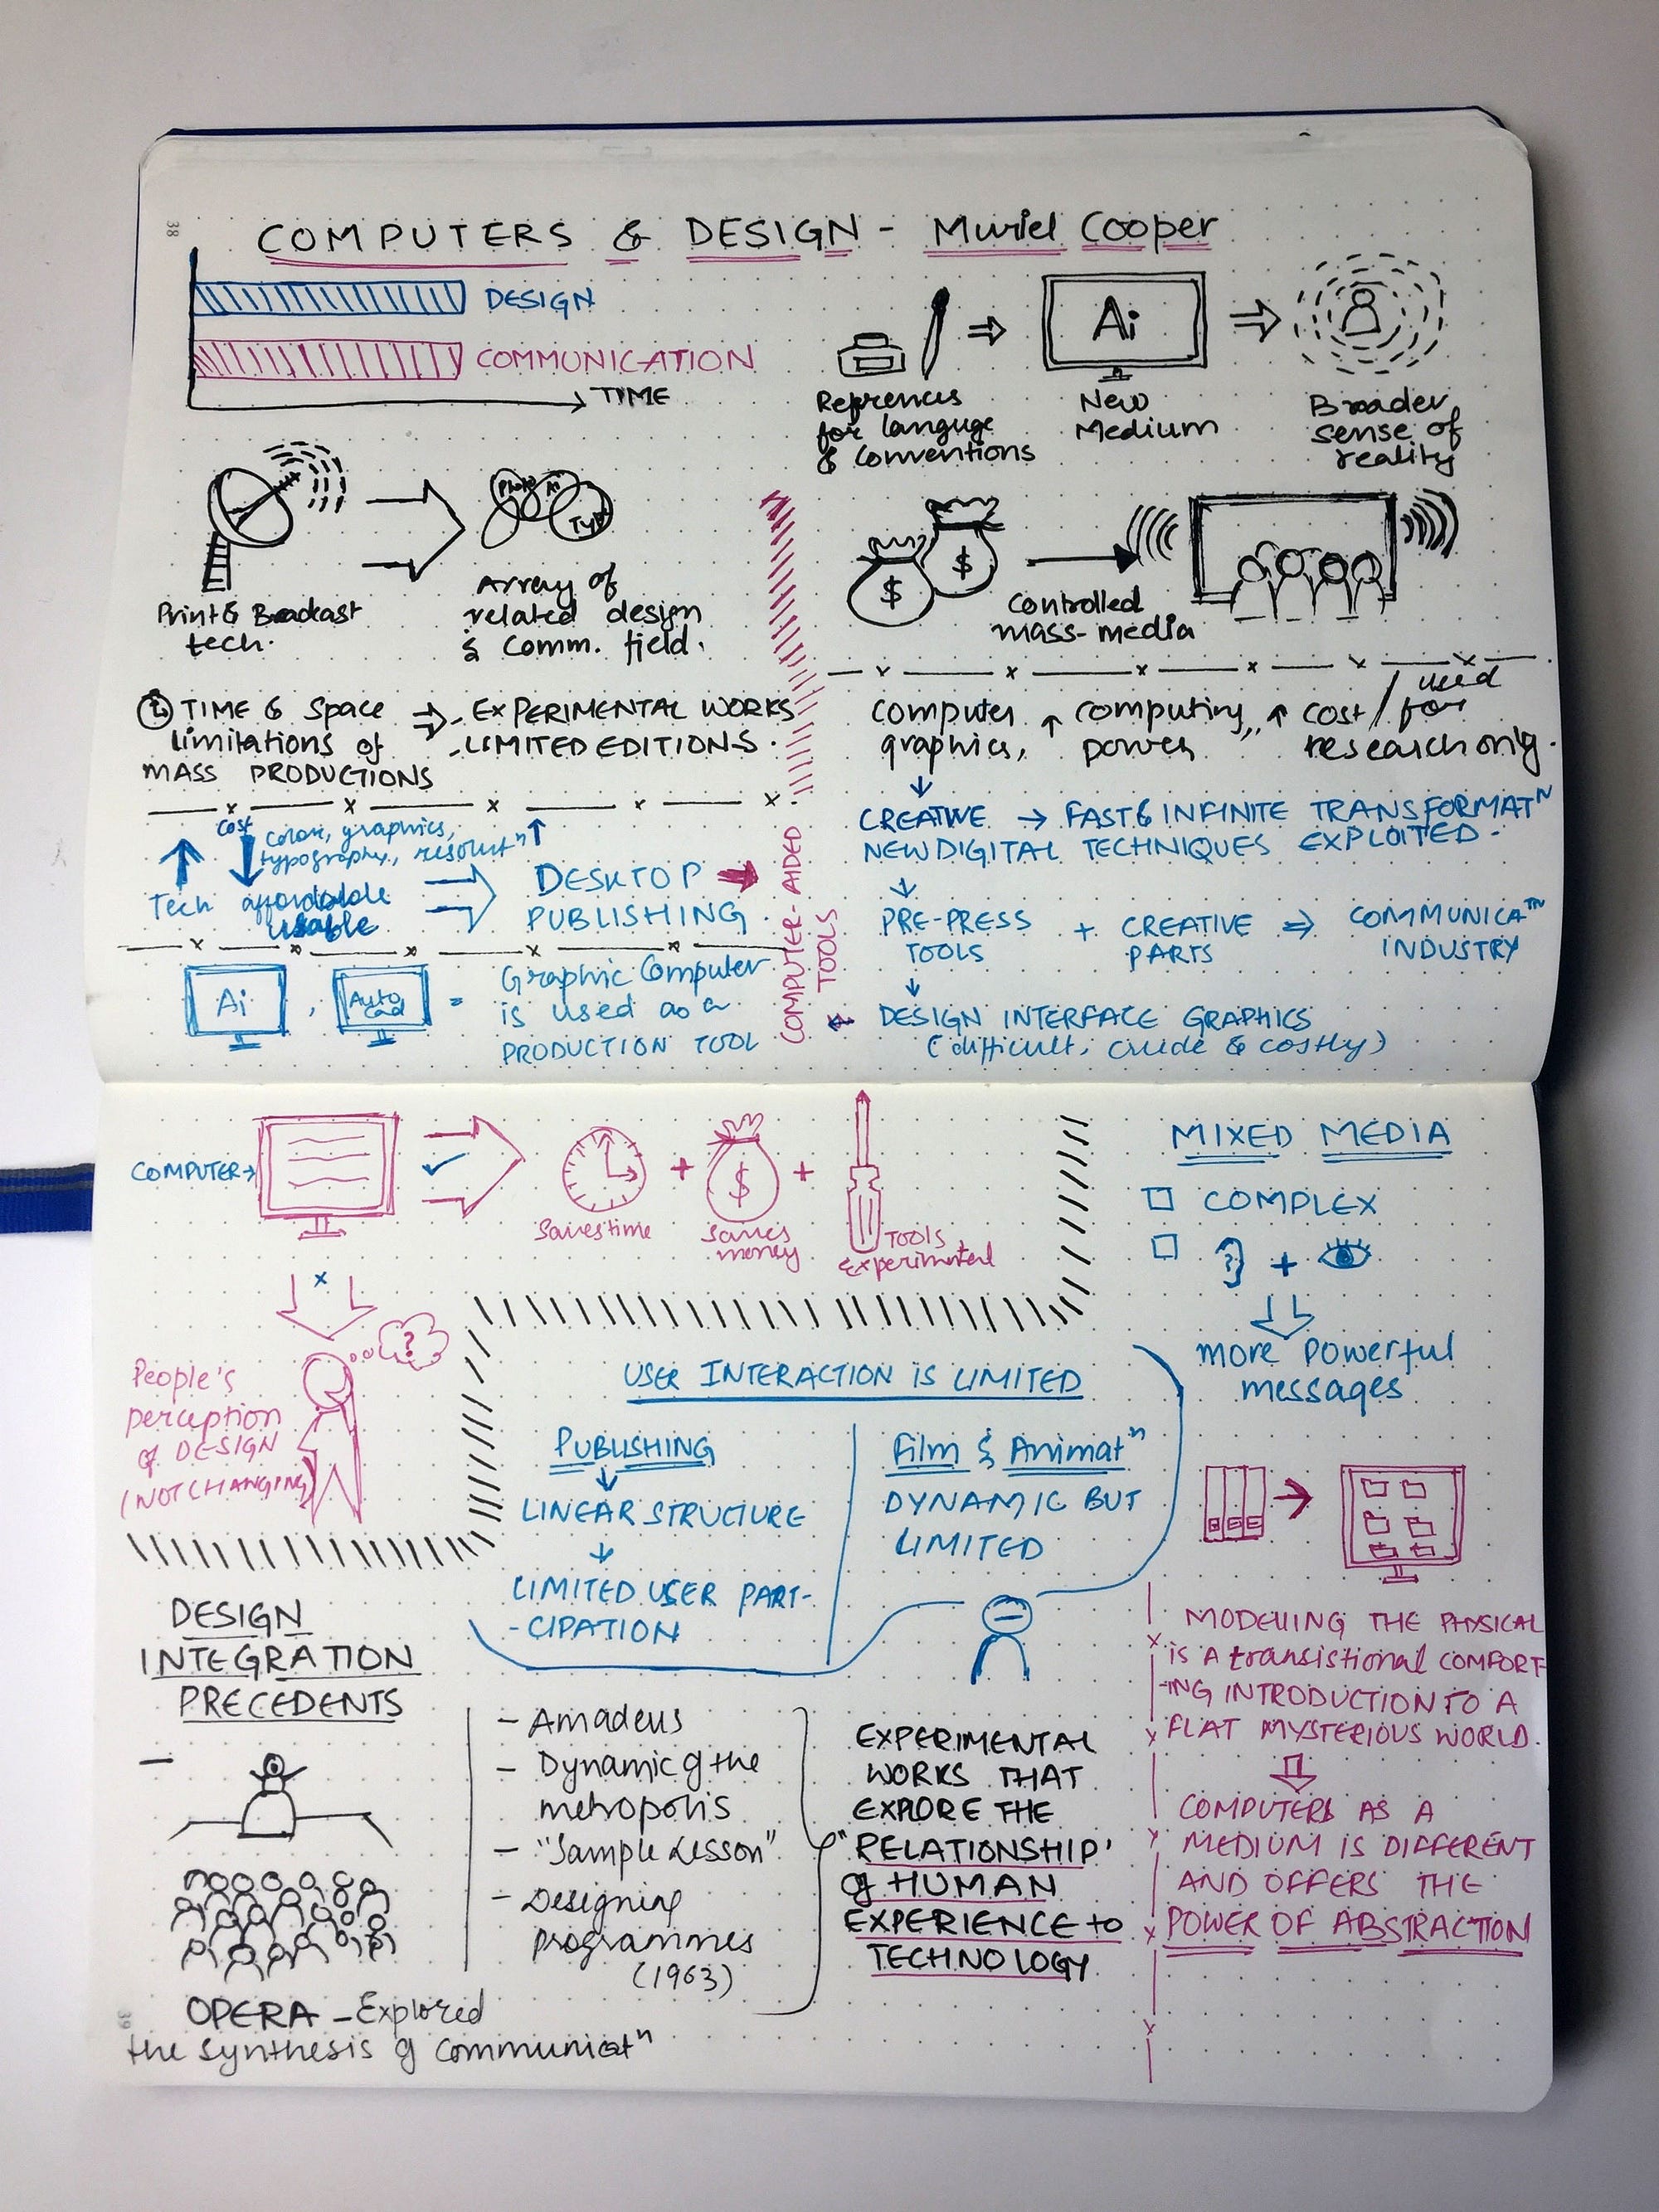 38
COMPUTERS & DESIGN - Muriel Cooper
DESIGN
COMMUNICATION
TIME
Ai
Refrences
for languge
& conventions
New
Medium
Broader
sense of
reality
Print & Broadcast
tech.
Photo Ai
Type
Array of
related design
& Comm. field.
$ $
Controlled
mass-media
TIME & Space
limitations of
MASS PRODUCTIONS
EXPERIMENTAL WORKS
LIMITED EDITIONS.
computer
graphics,
computing
power
cost / used
for
research only.
cost
Color, graphics,
typography, resolutⁿ
Tech affordable
usable
DESKTOP
PUBLISHING
COMPUTER-AIDED
TOOLS
CREATIVE → FAST & INFINITE TRANSFORMATᴺ
NEW DIGITAL TECHNIQUES EXPLOITED -
PRE-PRESS
TOOLS
+ CREATIVE
PARTS
COMMUNICAᵀᴺ
INDUSTRY
DESIGN INTERFACE GRAPHICS
(difficult, crude & costly)
Ai , Auto
cad =
Graphic Computer
is used as a
PRODUCTION TOOL
COMPUTER →
Saves time
+
$
Saves
money
+
TOOLS
experimental
x
?
People's
perception
of DESIGN
(NOT CHANGING)
MIXED MEDIA
COMPLEX
+
more powerful
messages
USER INTERACTION IS LIMITED
PUBLISHING
LINEAR STRUCTURE
LIMITED USER PARTI-
-CIPATION
Film & Animatⁿ
DYNAMIC BUT
LIMITED
MODELLING THE PHYSICAL
is A transistional COMFORT-
-ING INTRODUCTION TO A
FLAT MYSTERIOUS WORLD.
COMPUTERS AS A
MEDIUM IS DIFFERENT
AND OFFERS THE
POWER OF ABSTRACTION
DESIGN
INTEGRATION
PRECEDENTS
OPERA - Explored
the synthesis of communicatⁿ
- Amadeus
- Dynamic of the
metropolis
- "Sample Lesson"
- Designing
programmes
(1963)
EXPERIMENTAL
WORKS THAT
EXPLORE THE
"RELATIONSHIP'
of HUMAN
EXPERIENCE to
TECHNOLOGY
39